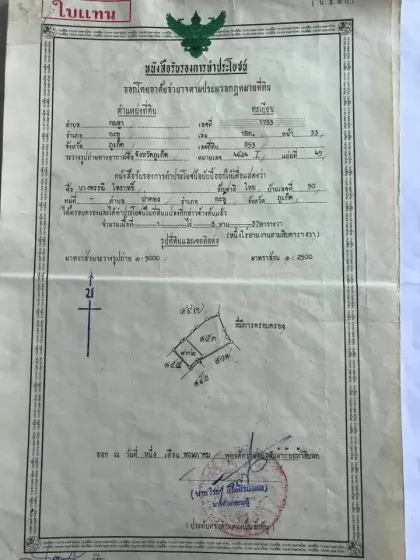 (น.ส.๓ก.)
ใบแทน
หนังสือรับรองการทำประโยชน์
ออกโดยอาศัยอำนาจตามประมวลกฎหมายที่ดิน
ตำแหน่งที่ดิน ทะเบียน
ตำบล กมลา เลขที่ 1753
อำเภอ กะทู้ เล่ม 18ก. หน้า 53
จังหวัด ภูเก็ต เลขที่ดิน 853
ระวางรูปถ่ายทางอากาศชื่อ จังหวัดภูเก็ต หมายเลข 4624 I แผ่นที่ 45
หนังสือรับรองการทำประโยชน์ฉบับนี้ออกให้เพื่อแสดงว่า
ชื่อ นางพรรณี สัญชาติ ไทย บ้านเลขที่ 50
หมู่ที่ - ตำบล ป่าตอง อำเภอ กะทู้ จังหวัด ภูเก็ต
ได้ครอบครองและได้ทำประโยชน์ในที่ดินแปลงที่กล่าวข้างต้นแล้ว
จำนวนเนื้อที่ 1 ไร่ 3 งาน 32 ตารางวา
(หนึ่งไร่สามงานสามสิบสองตารางวา)
รูปที่ดินและเขตติดต่อ
มาตราส่วนระวางรูปถ่าย ๑: 5000 มาตราส่วน ๑: 2500
น
ที่มีการครอบครอง
๘๕๓
ออก ณ วันที่ หนึ่ง เดือน พฤษภาคม
นายอำเภอกะทู้
(ประทับตราประจำตำแหน่งเป็นสำคัญ)